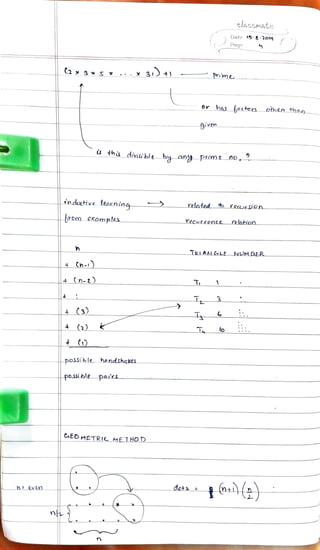 classmate
Date 15.8.2019
Page 4
(2 x 3 x 5 x ... x 31) + 1 — prime
or has factors other than given
is this divisible by any prime no. ?
inductive learning → related to recursion
from examples recurrence relation
n TRIANGLE NUMBER
+ (n-1)
+ (n-2) T₁ 1
+ : T₂ 3
+ (3) T₃ 6
+ (2) T₄ 10
+ (1)
possible handshakes
possible pairs
GEOMETRIC METHOD
n: even dots = (n+1) (n/2)
n/2
n